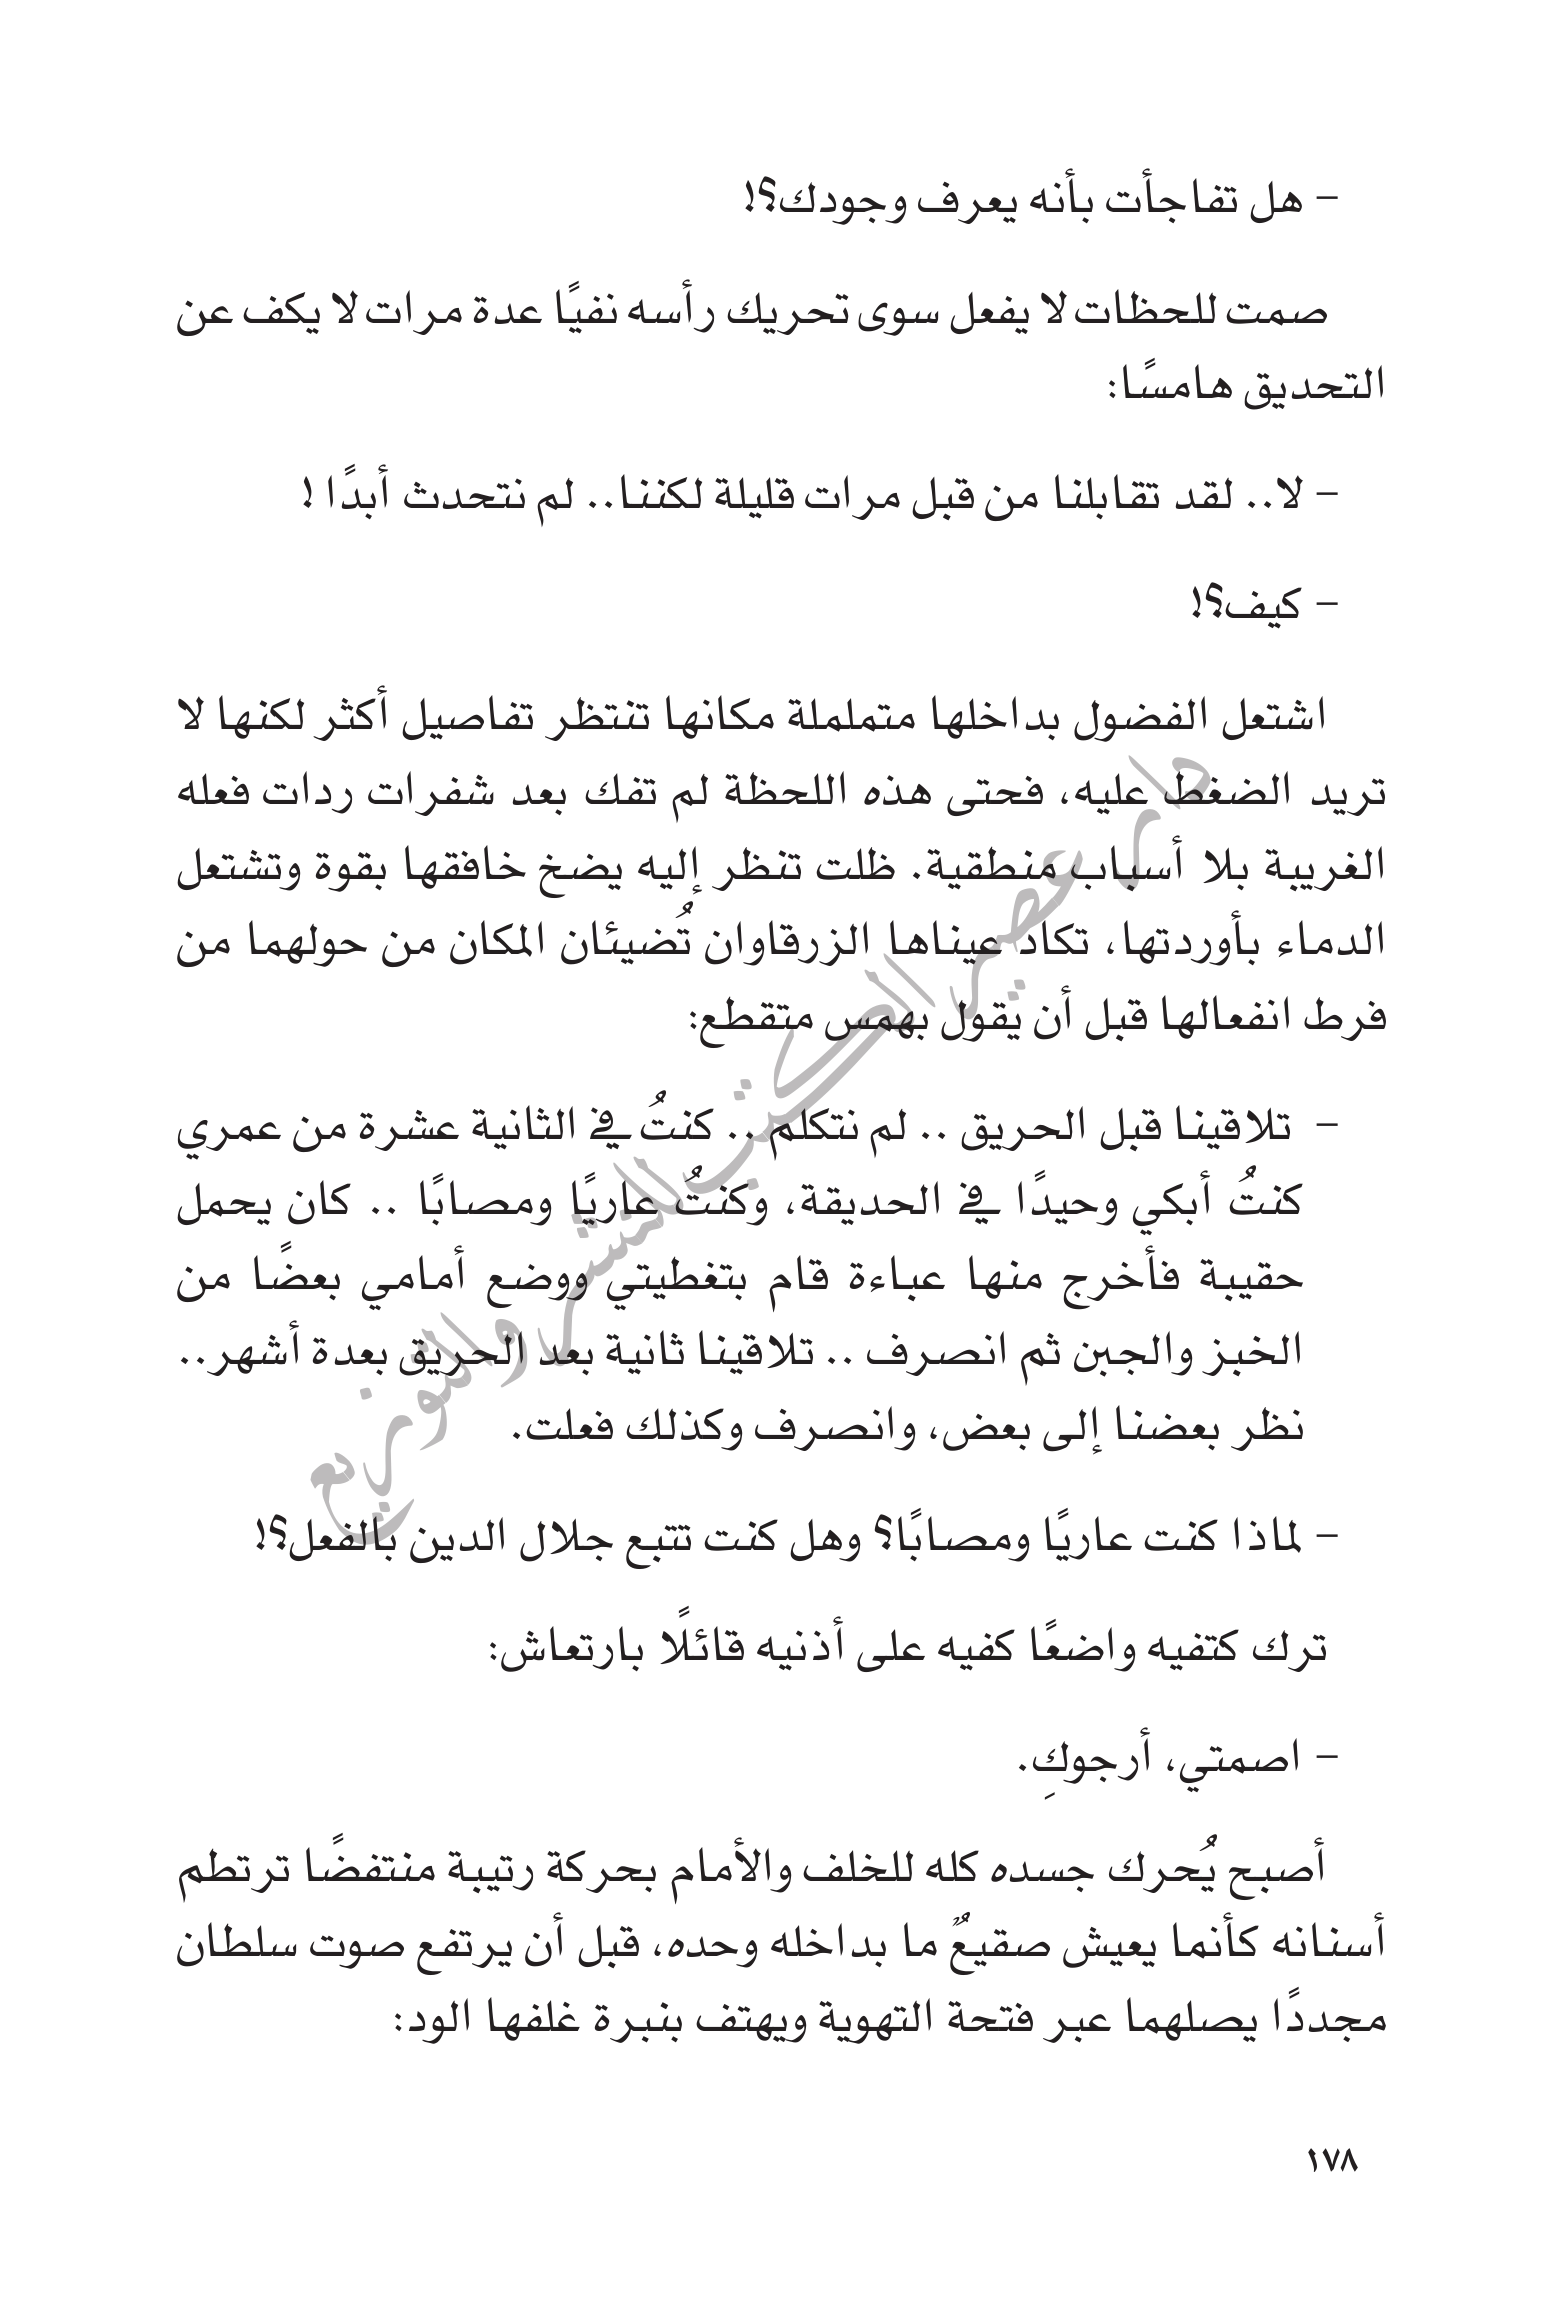 – هل تفاجأت بأنه يعرف وجودك؟!
صمت للحظات لا يفعل سوى تحريك رأسه نفيًا عدة مرات لا يكف عن
التحديق هامسًا:
– لا.. لقد تقابلنا من قبل مرات قليلة لكننا.. لم نتحدث أبدًا !
– كيف؟!
اشتعل الفضول بداخلها متململة مكانها تنتظر تفاصيل أكثر لكنها لا
تريد الضغط عليه، فحتى هذه اللحظة لم تفك بعد شفرات ردات فعله
الغريبة بلا أسباب منطقية. ظلت تنظر إليه يضخ خافقها بقوة وتشتعل
الدماء بأوردتها، تكاد عيناها الزرقاوان تُضيئان المكان من حولهما من
فرط انفعالها قبل أن يقول بهمس متقطع:
– تلاقينا قبل الحريق .. لم نتكلم .. كنتُ في الثانية عشرة من عمري
كنتُ أبكي وحيدًا في الحديقة، وكنتُ عاريًا ومصابًا .. كان يحمل
حقيبة فأخرج منها عباءة قام بتغطيتي ووضع أمامي بعضًا من
الخبز والجبن ثم انصرف .. تلاقينا ثانية بعد الحريق بعدة أشهر..
نظر بعضنا إلى بعض، وانصرف وكذلك فعلت.
– لماذا كنت عاريًا ومصابًا؟ وهل كنت تتبع جلال الدين بالفعل؟!
ترك كتفيه واضعًا كفيه على أذنيه قائلًا بارتعاش:
– اصمتي، أرجوكِ.
أصبح يُحرك جسده كله للخلف والأمام بحركة رتيبة منتفضًا ترتطم
أسنانه كأنما يعيش صقيعٌ ما بداخله وحده، قبل أن يرتفع صوت سلطان
مجددًا يصلهما عبر فتحة التهوية ويهتف بنبرة غلفها الود:
١٧٨
دار عصير الكتب للنشر والتوزيع